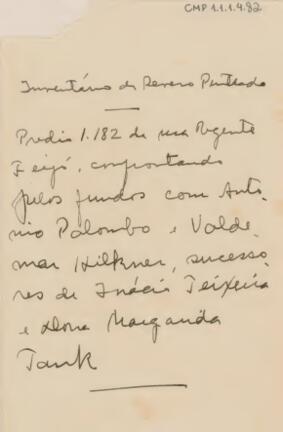 CMP 1.1.1.4.82
Inventário de Severo Penteado
Predio 1.182 de rua Regente
Feijó, confrontando
pelos fundos com Antô-
nio Palombo e Valde-
mar Hilkner, sucesso-
res de Inácio Teixeira
e dona Margarida
Tank